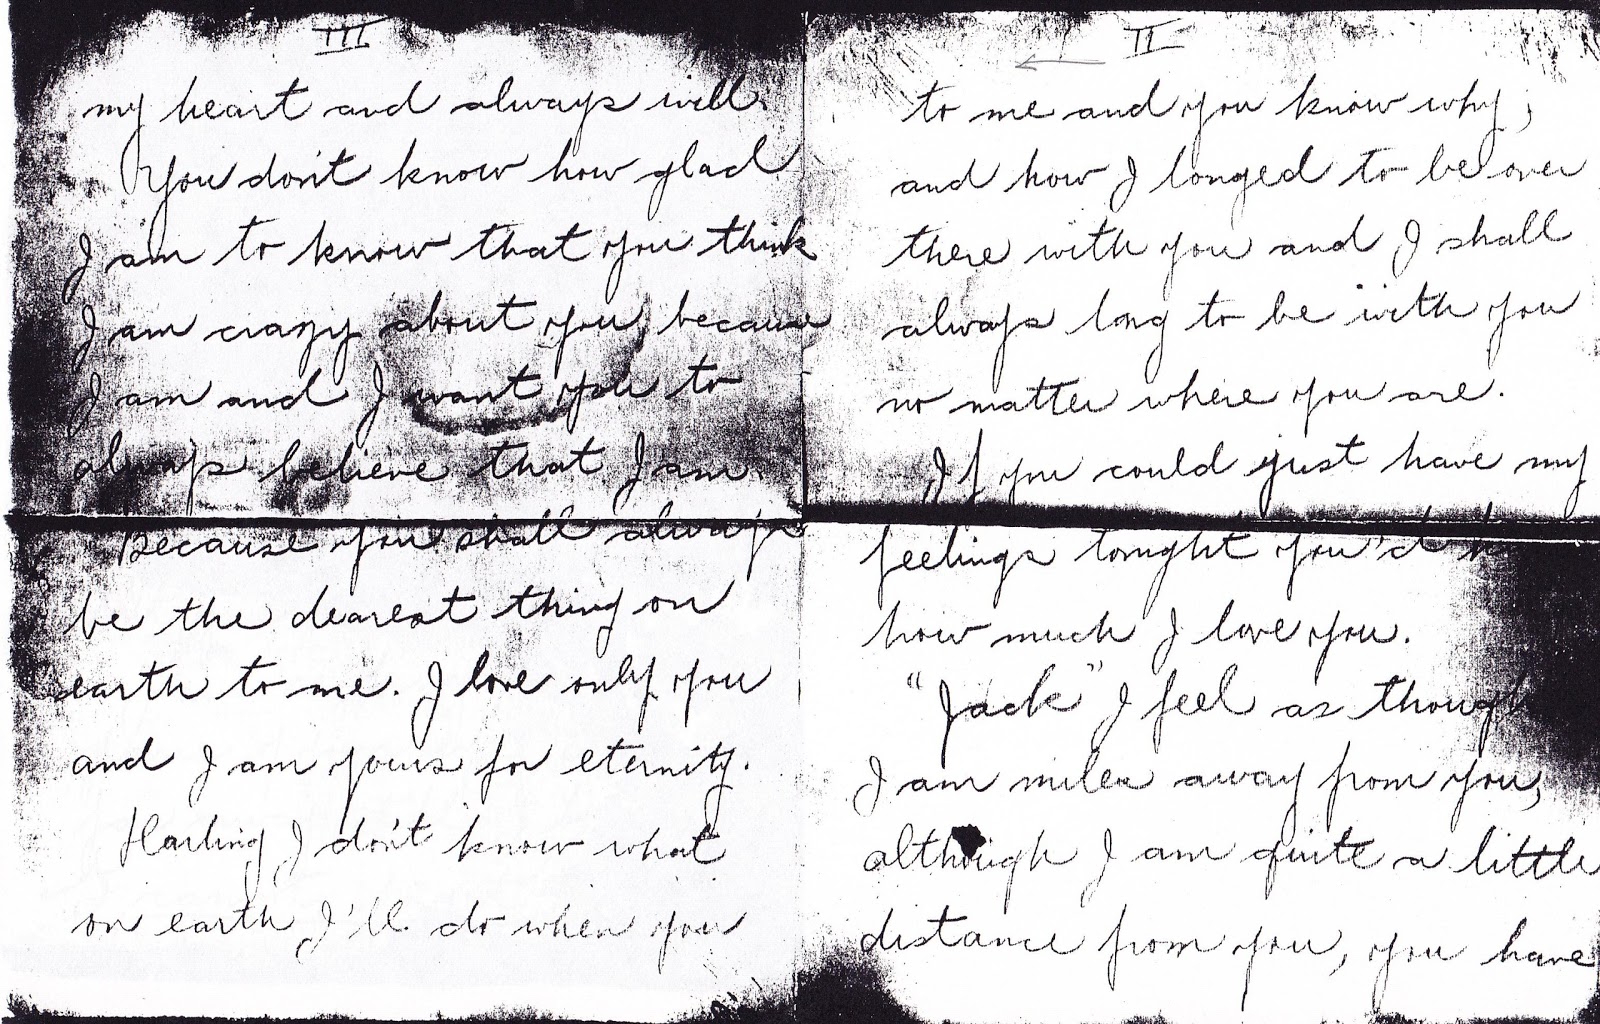 II
to me and you know why,
and how I longed to be over
there with you and I shall
always long to be with you
no matter where you are.
If you could just have my
feelings tonight you'd
how much I love you.
"Jack" I feel as though
I am miles away from you,
although I am quite a little
distance from you, you have
III
my heart and always will.
You don't know how glad
I am to know that you think
I am crazy about you, because
I am and I want you to
always believe that I am.
Because you shall always
be the dearest thing on
earth to me. I love only you
and I am yours for eternity.
Darling I don't know what
on earth I'll do when you